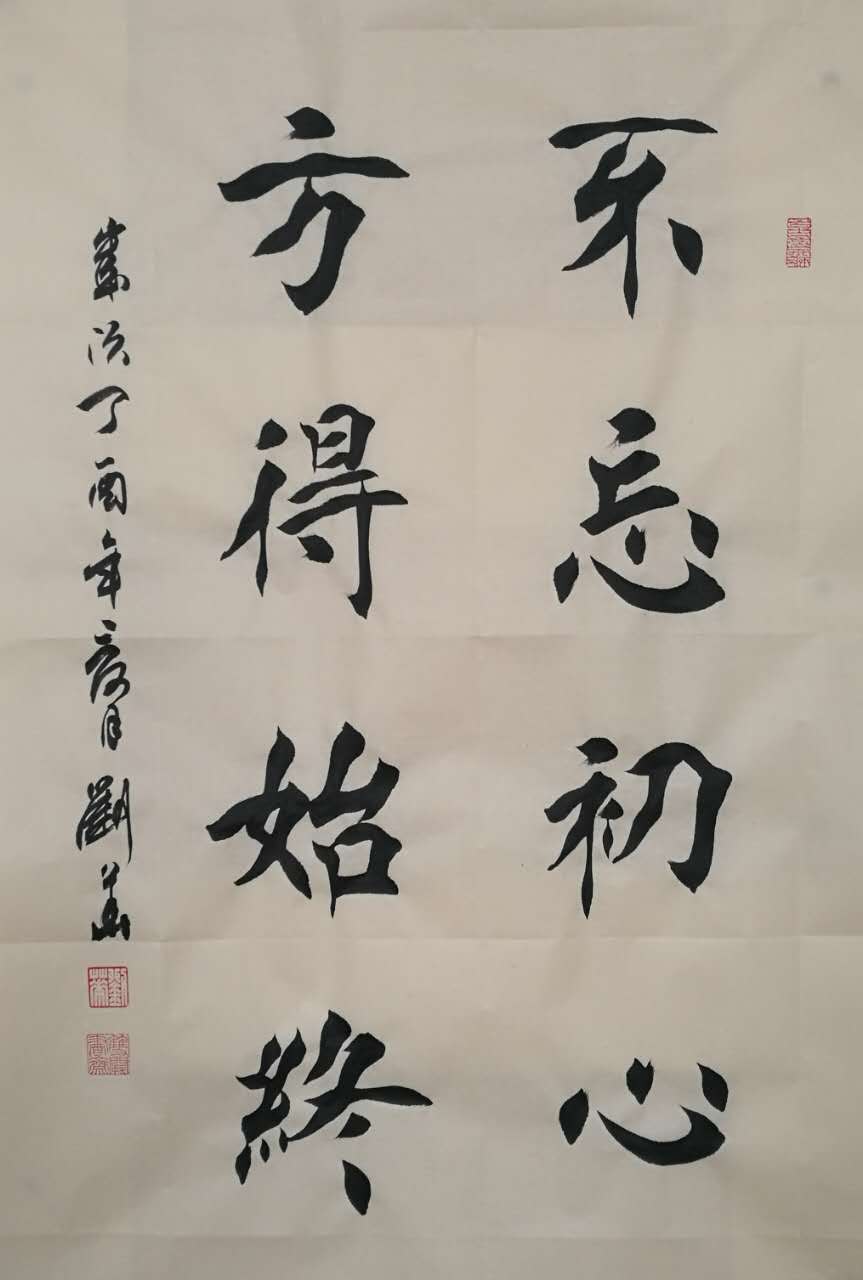 不忘初心
方得始終
歲次丁酉年夏月劉